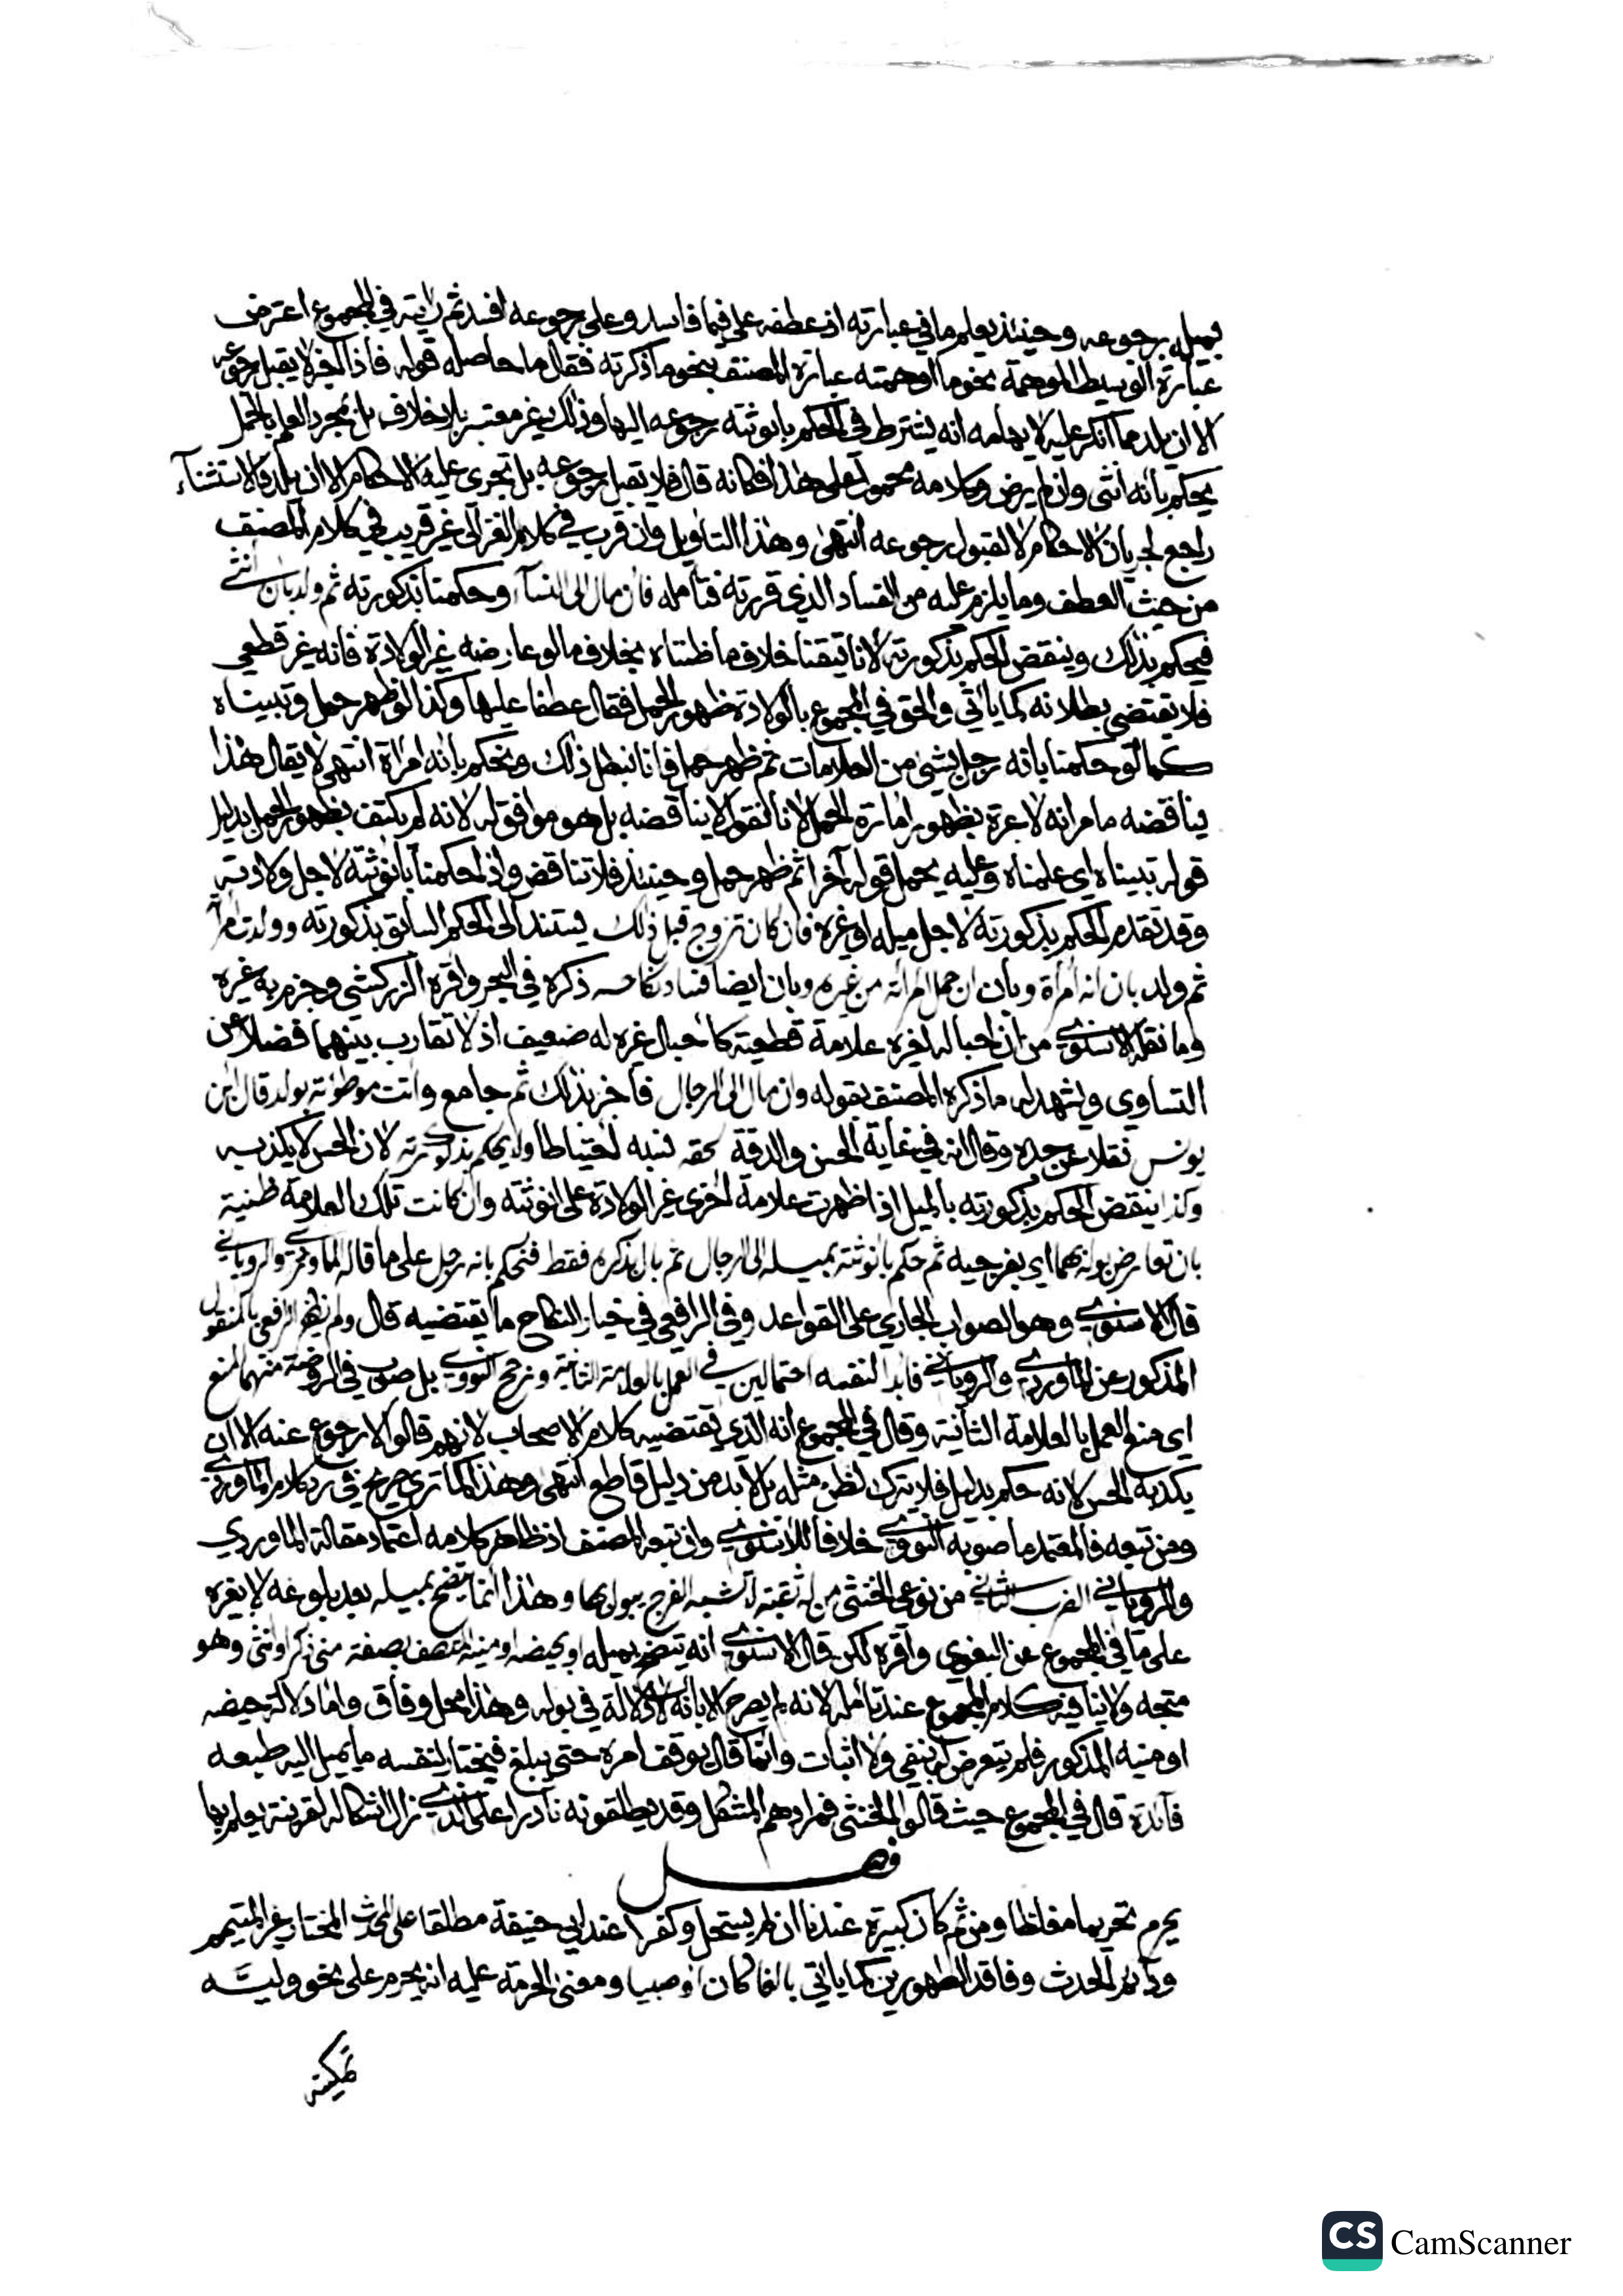 بميله برجوعه وحينئذ يعلم ما في عبارته اذ عطفه على فيما فاسد وعلى برجوعه افسد ثم رايته في المجموع اعترض
عبارة الوسيط الموهمة نحو ما اوهمته عبارة المصنف بنحو ما ذكرته فقال ما حاصله قوله فاذا اخبر لا يقبل رجوعه
الا ان يلد مما انكر عليه لايهامه انه يشترط في الحكم بانوثته رجوعه اليها وذلك غير معتبر بلا خلاف بل بمجرد العلم بالحمل
يحكم بانه انثى وان لم يرض وكلامه محمول على هذا فكانه قال فلا يقبل رجوعه بل تجري عليه الاحكام الا ان يلد فالاستثناء
راجع لجريان الاحكام لا لقبول رجوعه انتهى وهذا التاويل وان قرب في كلام الغزالي غير قريب في كلام المصنف
من حيث العطف وما يلزم عليه من الفساد الذي قررته فتامله فان مال الى النسآء وحكمنا بذكورته ثم ولد بان انثى
فيحكم بذلك وينقض الحكم بذكورته لانا تيقنا خلاف ما ظنناه بخلاف ما لو عارضه غير الولادة فانه غير قطعي
فلا يقتضي بطلانه كما ياتي والحق في المجموع بالولادة ظهور الحمل فقال عطفا عليها وكذا لو ظهر حمل وتبيناه
كما لو حكمنا بانه رجل بشئ من العلامات ثم ظهر حمل فانا نبطل ذلك ونحكم بانه امراة انتهى لا يقال هذا
يناقضه ما مر انه لا عبرة بظهور امارة الحمل لانا نقول لا يناقضه بل هو موافق له لانه لم يكتف بظهور الحمل بدليل
قوله تبيناه اي علمناه وعليه يحمل قوله آخرا ثم ظهر حمل وحينئذ فلا تناقض واذا حكمنا بانوثته لاجل ولادته
وقد تقدم الحكم بذكورته لاجل ميله او غيره فان كان تزوج قبل ذلك يستند الى الحكم السابق بذكورته وولدت امراته
ثم ولد بان انه امراة وبان ان حمل امراته من غيره وبان ايضا فساد نكاحه ذكره في البحر واقره الزركشي وجزم به غيره
وما نقله الاسنوي من ان احباله لغيره علامة قطعية كاحبال غيره له ضعيف اذ لا تقارب بينهما فضلا عن
التساوي ويشهد له ما ذكره المصنف بقوله وان مال الى الرجال فاخبر بذلك ثم جامع واتت موطوءته بولد قال ابن
يونس نقلا عن جده وقال انه في غاية الحسن والدقة لحقه نسبه احتياطا ولم يحكم بذكورته لان الحس لا يكذبه
وكذا ينقض الحكم بذكورته بالميل اذا ظهرت علامة اخرى غير الولادة على انوثته وان كانت تلك العلامة ظنية
بان تعارض بوله بهما اي بفرجيه ثم حكم بانوثته بميله الى الرجال ثم بال بذكره فقط فنحكم بانه رجل على ما قاله الماوردي والروياني
قال الاسنوي وهو الصواب الجاري على القواعد وفي الرافعي في خيار النكاح ما يقتضيه قال ولم يظفر الرافعي بالمنقول
المذكور عن الماوردي والروياني فابدا لنفسه احتمالين في العمل بالعلامة الثانية ورجح النووي بل صوب في الروضة منهما المنع
اي منع العمل بالعلامة الثانية وقال في المجموع انه الذي يقتضيه كلام الاصحاب لانهم قالوا لا رجوع عنه الا ان
يكذبه الحس لانه حكم بدليل فلا يترك لظن مثله بل لا بد من دليل قاطع انتهى وهذا كما ترى صريح في رد كلام الماوردي
ومن تبعه فالمعتمد ما صوبه النووي خلافا للاسنوي وان تبعه المصنف اذ ظاهر كلامه اعتماد مقالة الماوردي
والروياني الضرب الثاني من نوعي الخنثى من له ثقبة لا تشبه الفرج يبول بها وهذا انما يتضح بميله بعد بلوغه لا بغيره
على ما في المجموع عن البغوي واقره لكن قال الاسنوي انه يتضح بميله او بحيضه او منيه المتصف بصفة مني ذكر او انثى وهو
متجه ولا ينافيه كلام المجموع عند تامله لانه لم يصرح الا بانه لا دلالة في بوله وهذا محل وفاق واما دلالة حيضه
او منيه المذكور فلم يتعرض لها بنفي ولا اثبات وانما قال يوقف امره حتى يبلغ فيختار لنفسه ما يميل اليه طبعه
فآئدة قال في المجموع حيث قالوا الخنثى فمرادهم المشكل وقد يطلقونه نادرا على الذي زال اشكاله لقرينة يعلم بها
فصل
يحرم تحريما مغلظا ومن ثم كان كبيرة عندنا ان لم يستحل وكفرا عند ابي حنيفة مطلقا على المحدث المختار غير المتيمم
ودآئم الحدث وفاقد الطهورين كما ياتي بالغا كان او صبيا ومعنى الحرمة عليه انه يحرم على نحو وليه
تمكينه
CS CamScanner